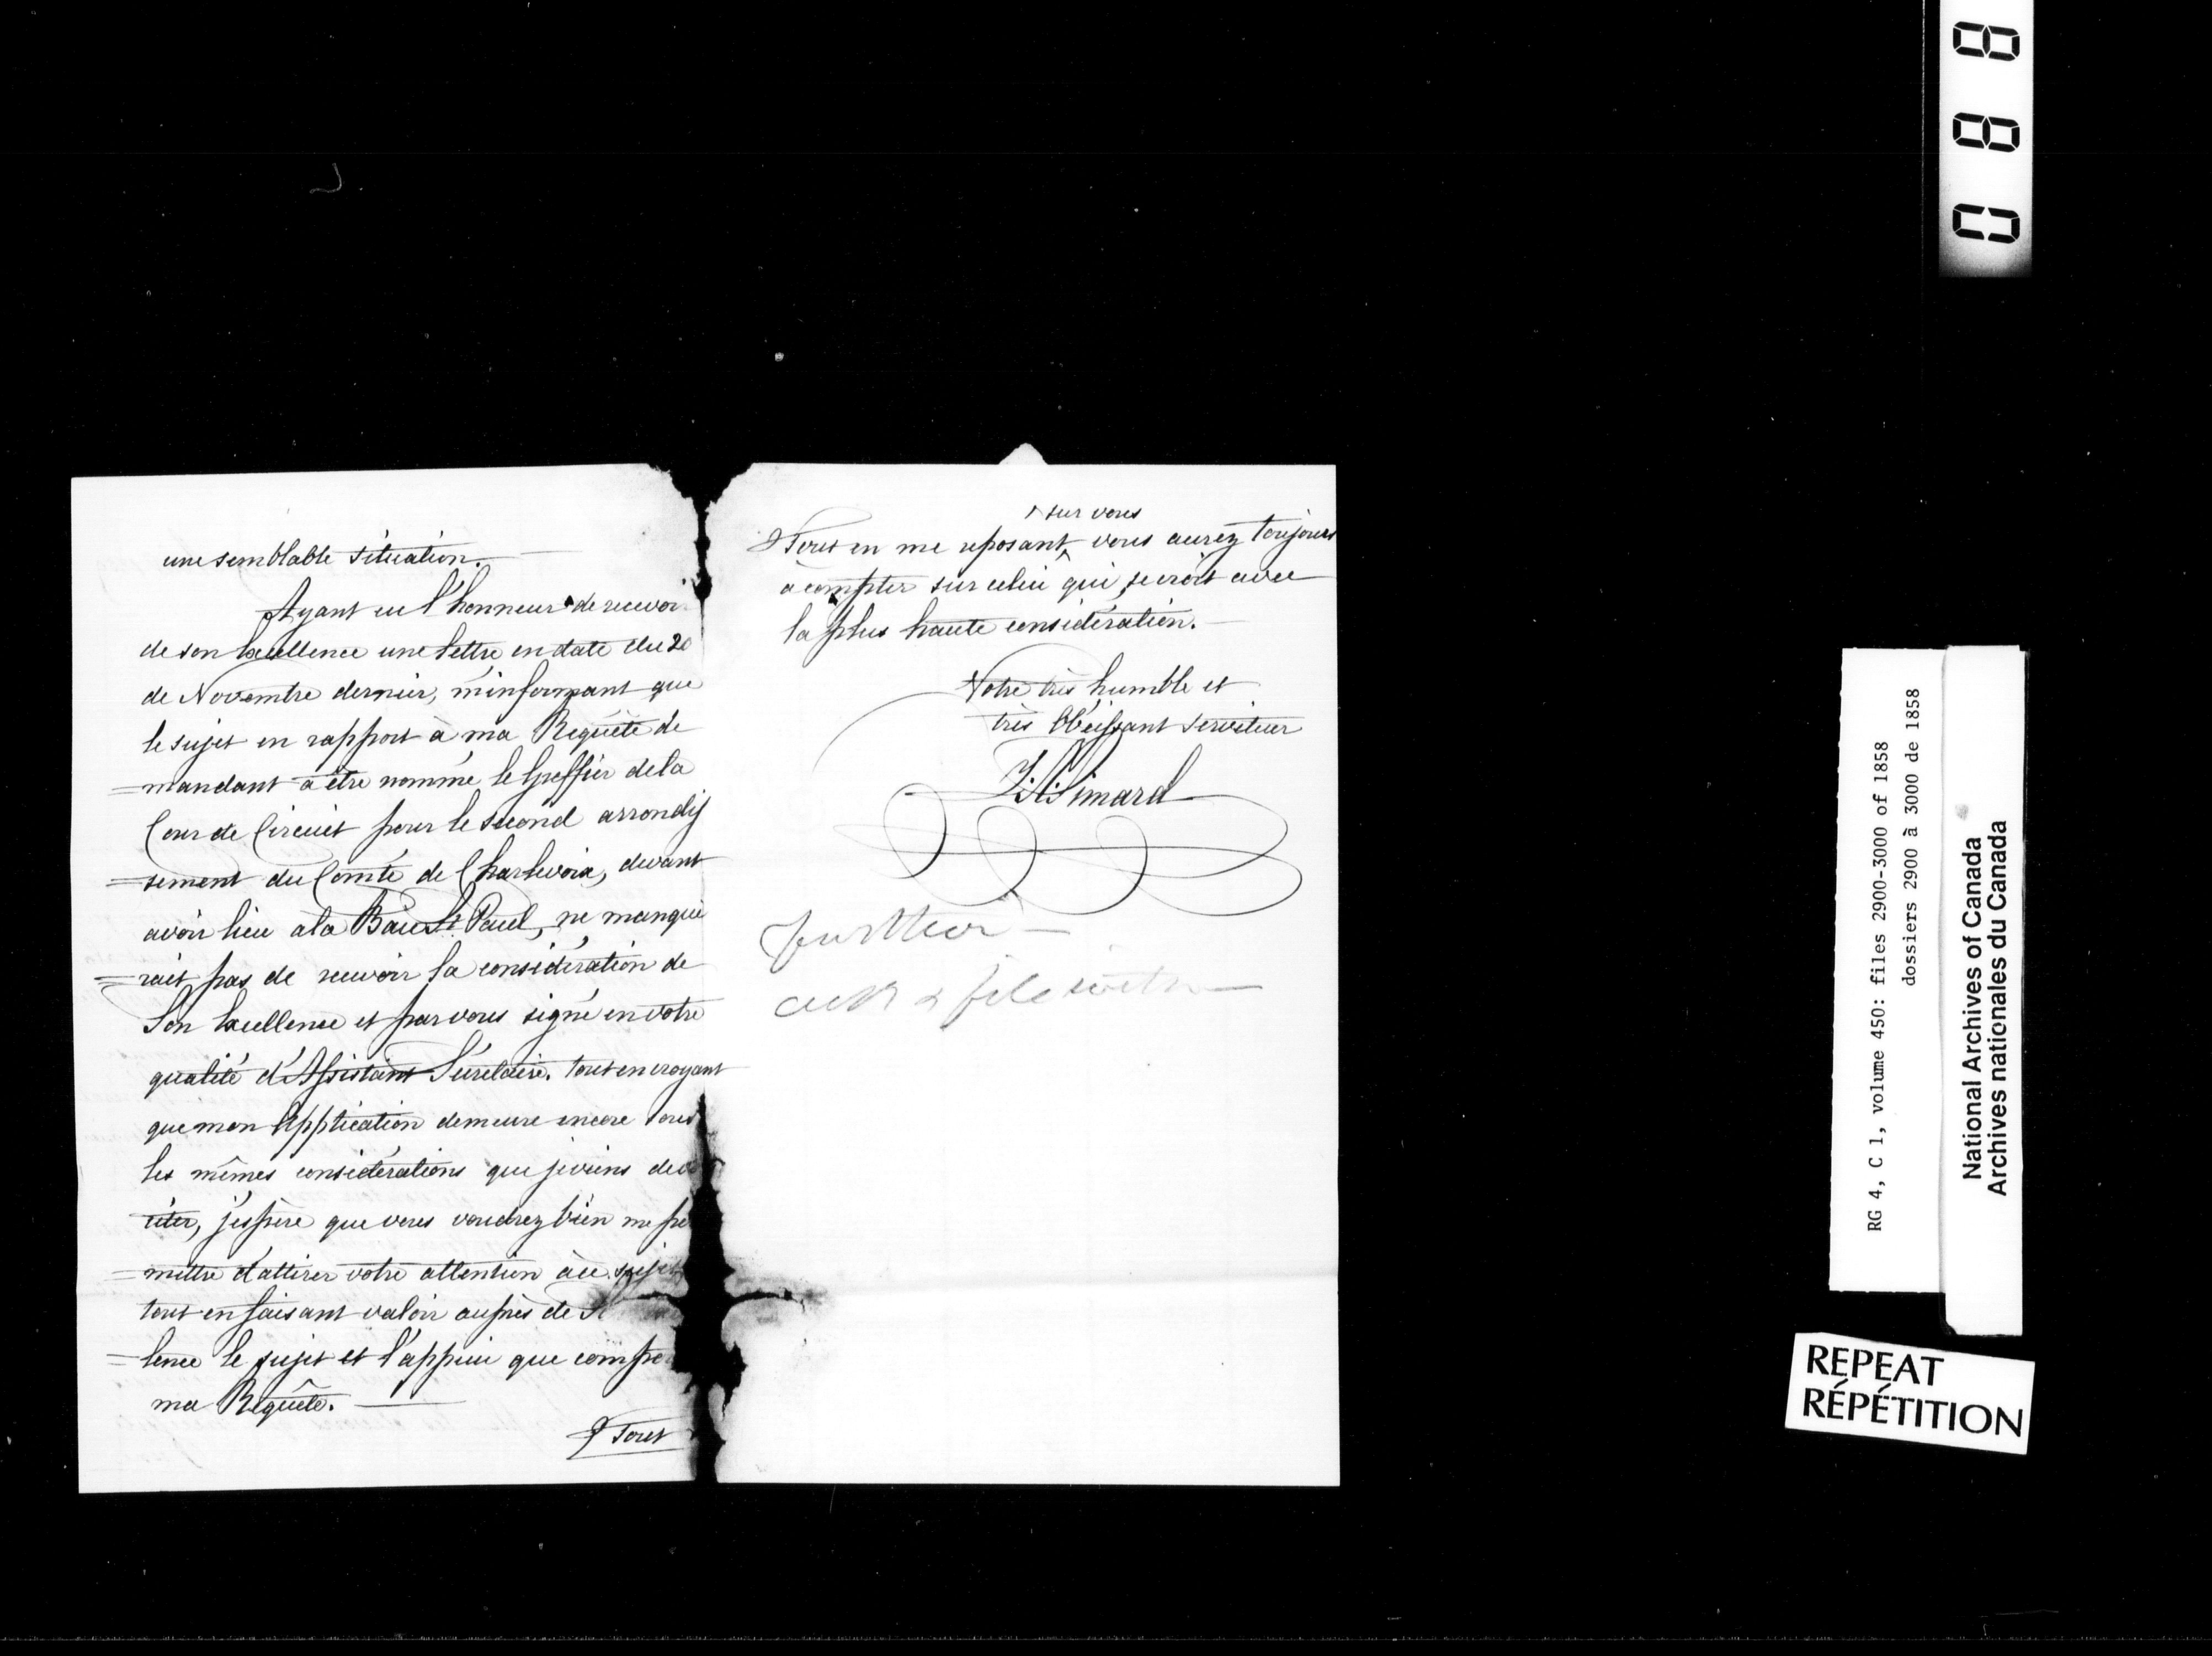 une semblable situation.
Ayant eu l'honneur de recevoir
de son Excellence une lettre en date du 20
de Novembre dernier, m'informant que
le sujet en rapport à ma Requête de
=mandant à être nommé le Greffier de la
Cour de Circuit pour le second arrondis
=sement du Comté de Charlevoix, devant
avoir lieu a la Baie St Paul, ne manque
=rait pas de recevoir la considération de
Son Excellence et par vous signé en votre
qualité d'Assistant Secrétaire. tout en croyant
que mon Application demeure encore sous
les mêmes considérations que je viens de
citer, j'espère que vous voudrez bien me pe
=mettre d'attirer votre attention à ce sujet
tout en faisant valoir auprès de
=lence le sujet et l'appui que compo
ma Requête.
Tout
sur vous
Tout en me reposant ^ vous aurez toujours
à compter sur celui qui se croit avec
la plus haute considération.
Votre très humble et
très Obéissant serviteur
Simard
further
& file with
0 8 8
RG 4, C 1, volume 450: files 2900-3000 of 1858
dossiers 2900 à 3000 de 1858
National Archives of Canada
Archives nationales du Canada
REPEAT
RÉPÉTITION